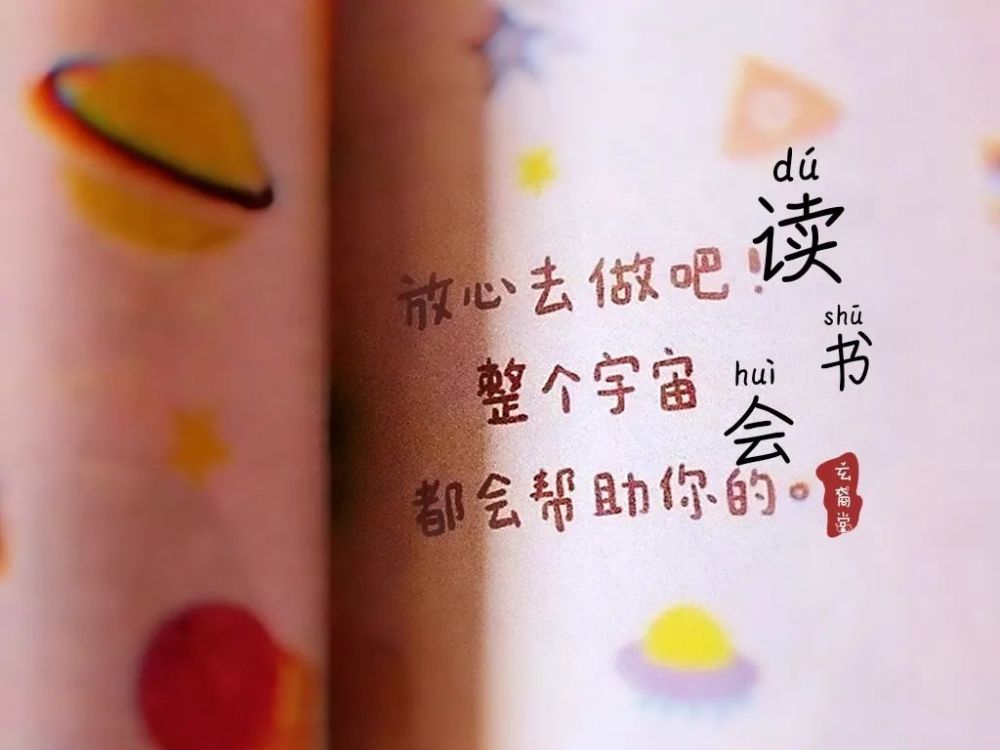 放心去做吧！
整个宇宙
都会帮助你的。
dú
读
shū
书
huì
会
玄裔堂